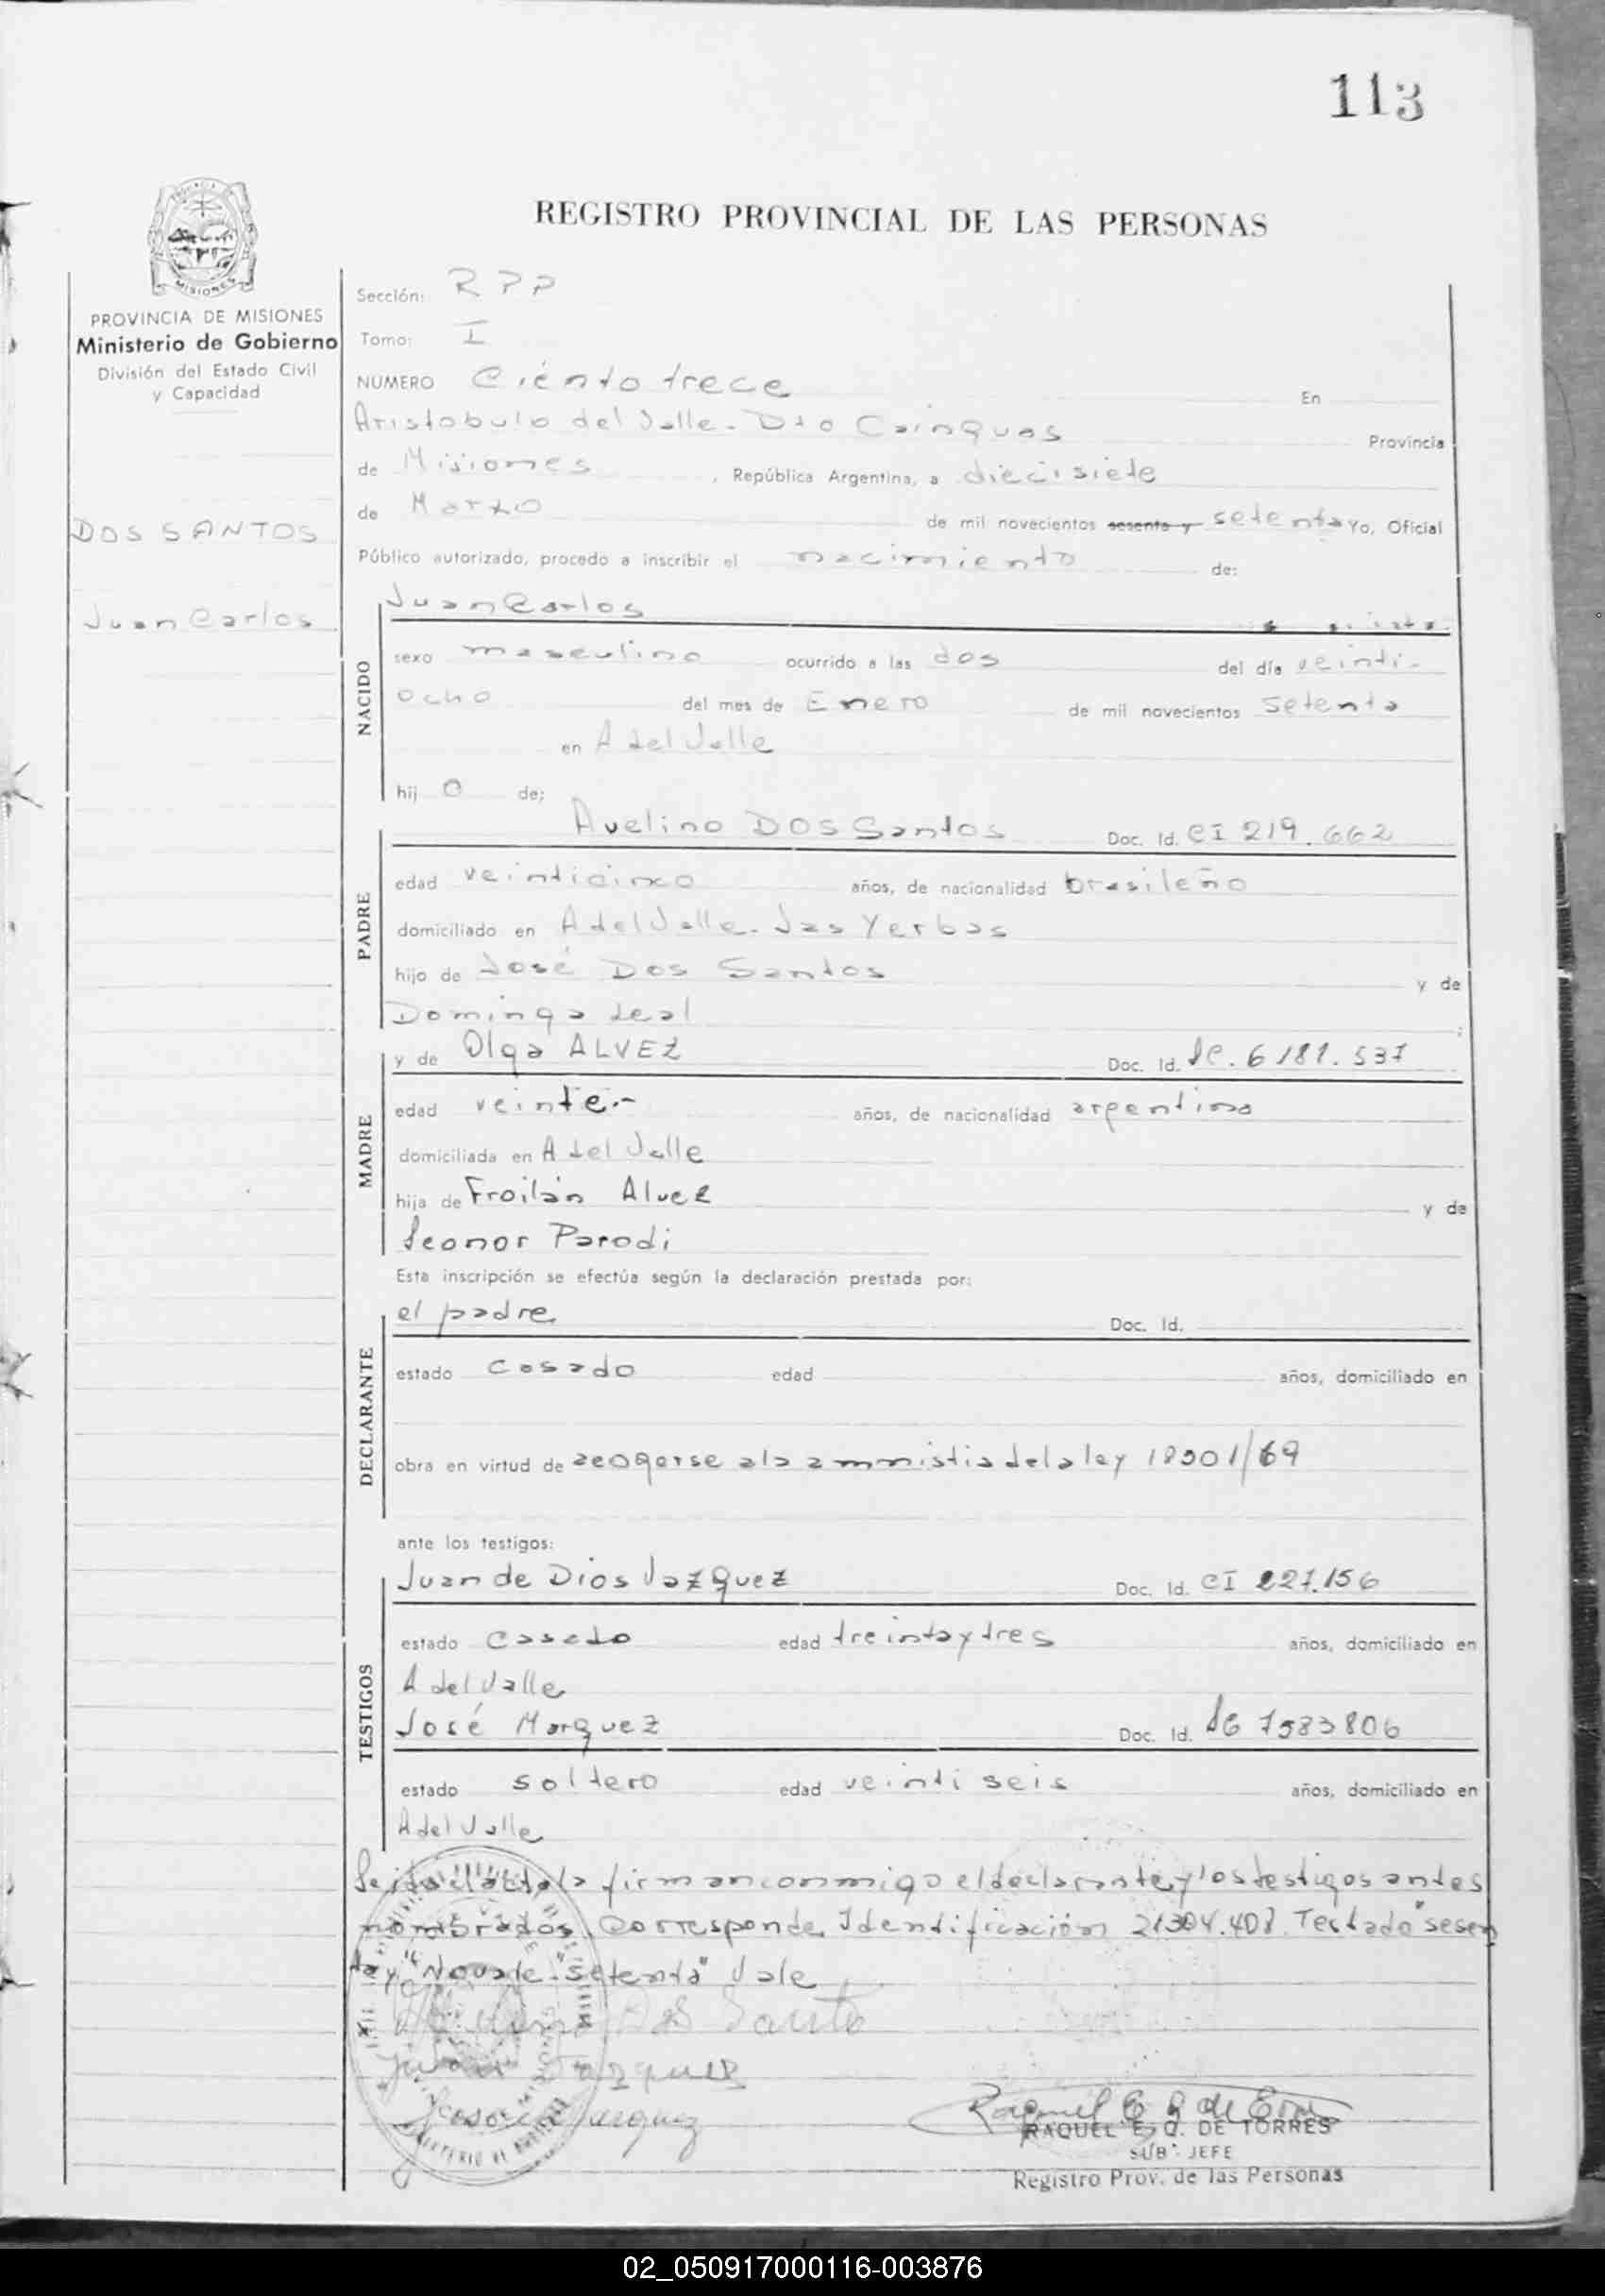 113
REGISTRO PROVINCIAL DE LAS PERSONAS
MISIONES
PROVINCIA DE MISIONES
Ministerio de Gobierno
División del Estado Civil
y Capacidad
DOS SANTOS
Juan Carlos
Sección: RPP
Tomo: I
NUMERO Ciento trece En
Aristobulo del Valle - Dto Cainguas Provincia
de Misiones, República Argentina, a diecisiete
de Marzo de mil novecientos sesenta y setenta Yo, Oficial
Público autorizado, procedo a inscribir el nacimiento de:
NACIDO
Juan Carlos
sexo masculino ocurrido a las dos del día veinti-
ocho del mes de Enero de mil novecientos setenta
en A del Valle
hij o de;
PADRE
Avelino DOS Santos Doc. Id. CI 219.662
edad veinticinco años, de nacionalidad brasileño
domiciliado en A del Valle - Las Yerbas
hijo de José Dos Santos y de
Dominga Leal ;
MADRE
y de Olga ALVEZ Doc. Id. LC. 6181.537
edad veinte.- años, de nacionalidad argentina
domiciliada en A del Valle
hija de Froilán Alvez y de
Leonor Parodi
Esta inscripción se efectúa según la declaración prestada por:
DECLARANTE
el padre Doc. Id.
estado casado edad años, domiciliado en
obra en virtud de acogerse a la amnistia de la ley 18301/69
ante los testigos:
TESTIGOS
Juan de Dios Vazquez Doc. Id. CI 227.156
estado casado edad treinta y tres años, domiciliado en
A del Valle
José Marquez Doc. Id. 7583806
estado soltero edad veinti seis años, domiciliado en
A del Valle
Leida el acta la firman conmigo el declarante y los testigos antes
nombrados. Corresponde Identificación 21304.408. Testado "sesen
ta y" No vale. "setenta" Vale
Dos Santo
Juan Vazquez
Jose Marquez
RAQUEL E. Q. DE TORRES
SUB-JEFE
Registro Prov. de las Personas
02_050917000116-003876